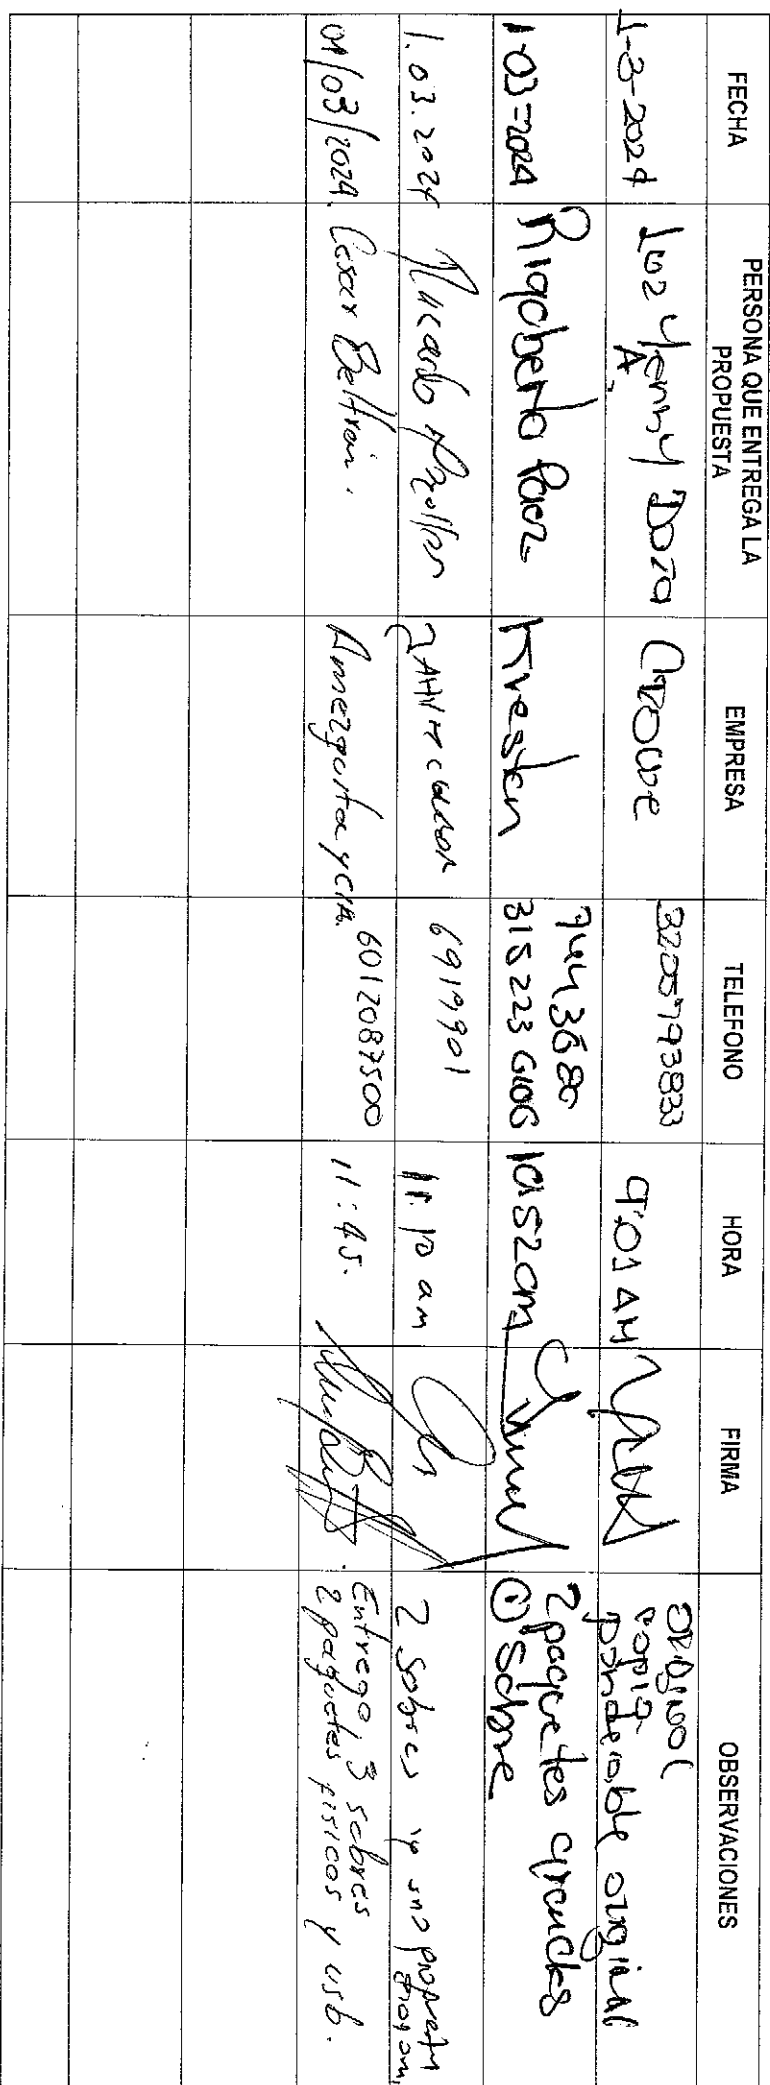 FECHA
PERSONA QUE ENTREGA LA
PROPUESTA
EMPRESA
TELEFONO
HORA
FIRMA
OBSERVACIONES
1-3-2024
Luz Yenny Doza
A.
Crowe
3205793833
9:01 AM
original
copia
ponderable original
1-03-2024
Rigoberto Paez
Kreston
7443680
315223 6106
10:52am
2 paquetes grandes
① Sobre
1.03.2024
Ricardo
6919901
11:10 am
2 sobres y
01/03/2024.
Cesar Beltran.
Amezquita y CIA.
6012087500
11:45.
Entrego 3 sobres
2 paquetes fisicos y usb.